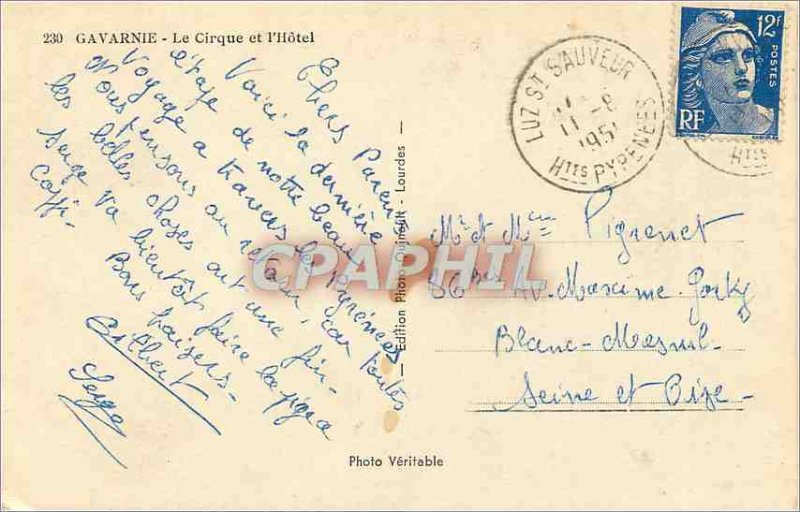 230 GAVARNIE - Le Cirque et l'Hôtel
Chers Parents
Voici la dernière
étape de notre beau
Voyage a travers les Pyrénées
Nous pensons au retour, car toutes
les belles choses ont une fin -
Serge va bientôt faire la
Bons baisers -
Gilbert
Serge
Edition Photo - Lourdes -
Photo Véritable
LUZ ST SAUVEUR
11 - 8
1951
HTES PYRENEES
12F
POSTES
RF
HTES
Mr et Mme Pigrenet
86 bis Av. Maxime Gorky
Blanc-Mesnil-
Seine et Oise-
CPAPHIL